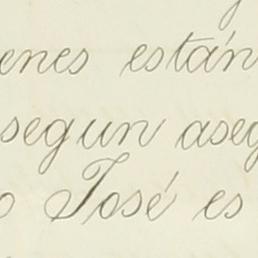 enes están
segun aseg
o José es